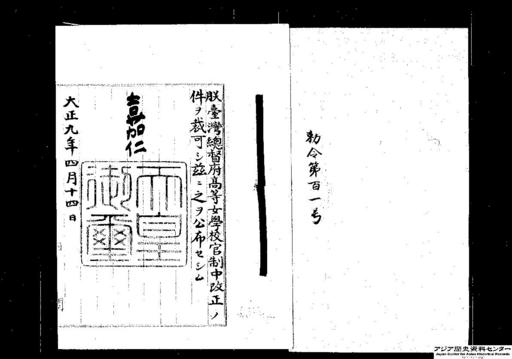 勅令第百一号
朕臺灣總督府高等女學校官制中改正ノ
件ヲ裁可シ茲ニ之ヲ公布セシム
嘉仁
天皇
御璽
大正九年四月十四日
アジア歴史資料センター
Japan Center for Asian Historical Records